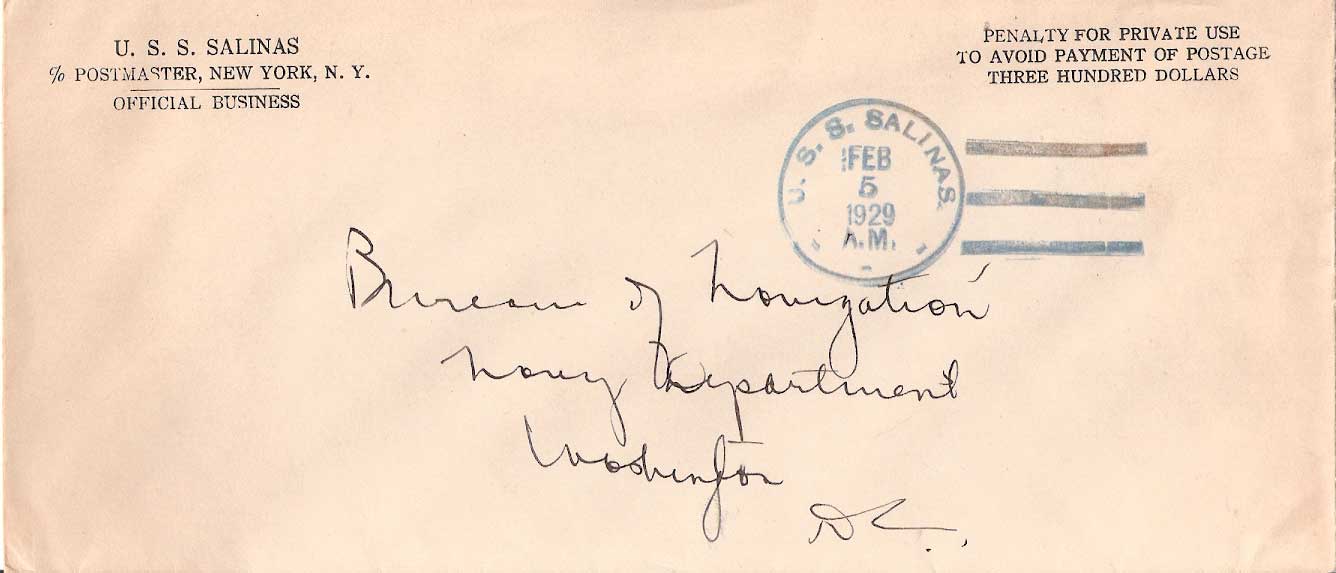 U. S. S. SALINAS
c/o POSTMASTER, NEW YORK, N. Y.
OFFICIAL BUSINESS
PENALTY FOR PRIVATE USE
TO AVOID PAYMENT OF POSTAGE
THREE HUNDRED DOLLARS
U. S. S. SALINAS.
FEB
5
1929
A.M.
Bureau of Navigation
Navy Department
Washington
D.C.